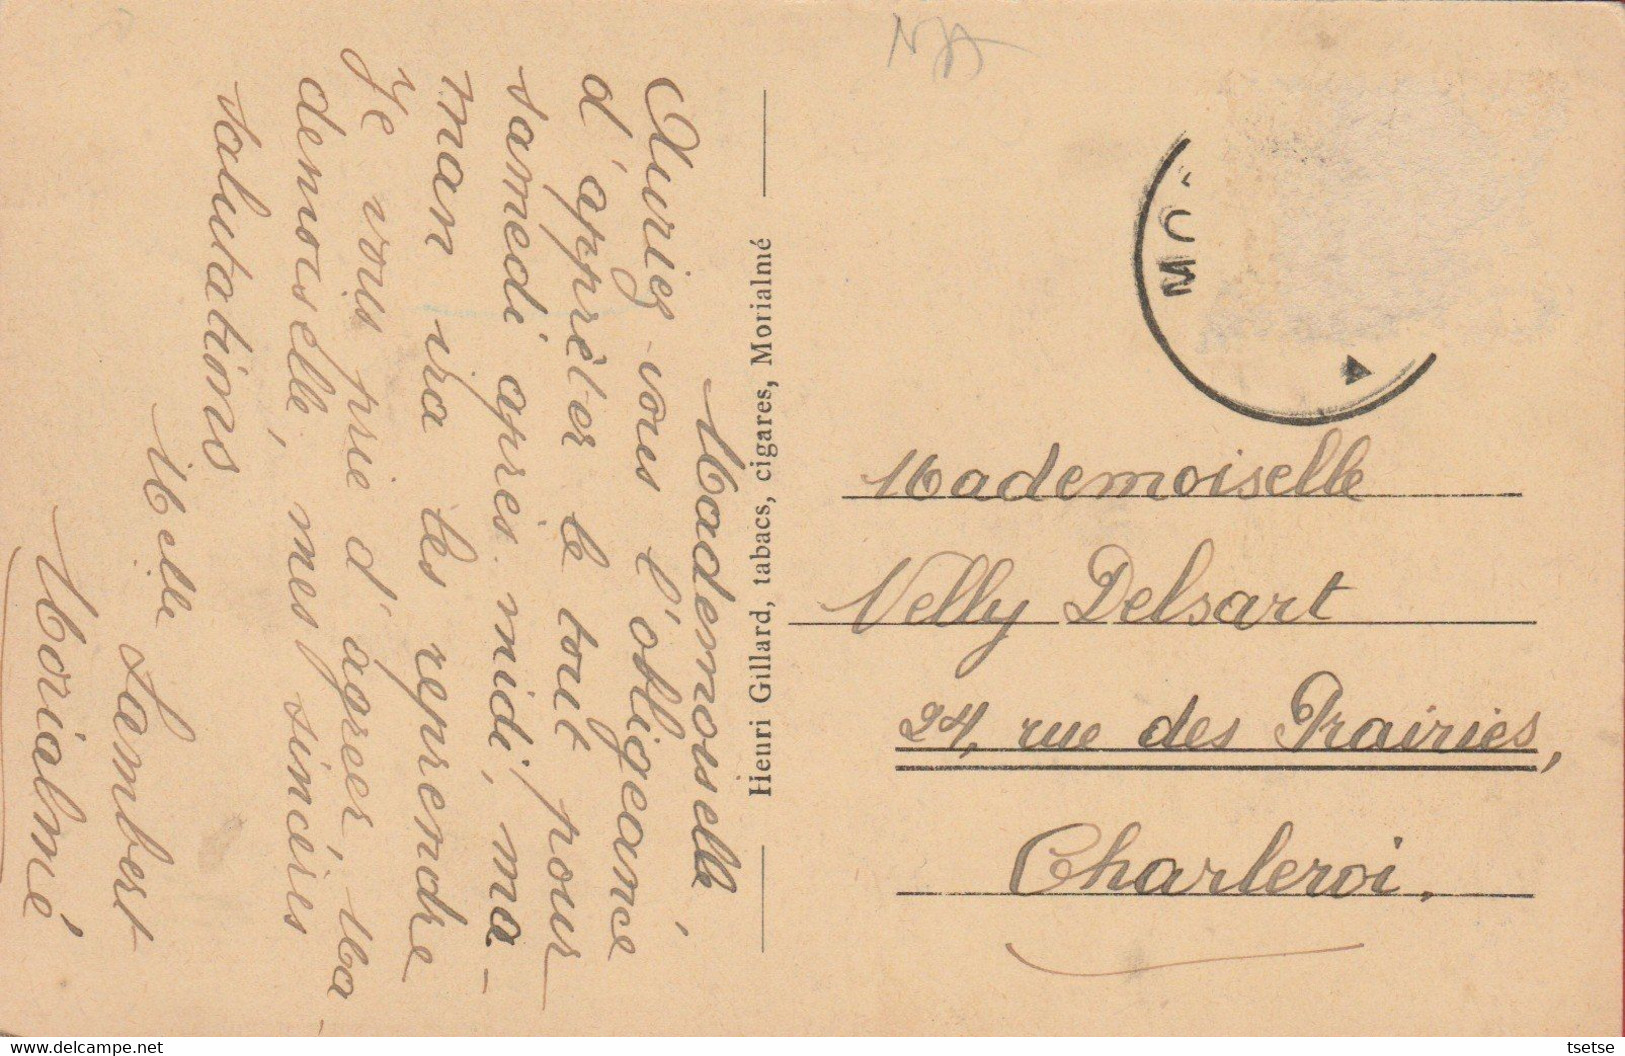 Mademoiselle,
Auriez-vous l'obligeance
d'apprêter le tout pour
samedi après-midi, ma-
man ira les reprendre
Je vous prie d'agréer, Ma-
demoiselle, mes sincères
salutations
Melle Lambert
Morialmé
Henri Gillard, tabacs, cigares, Morialmé
Mademoiselle
Nelly Delsart
24, rue des Prairies,
Charleroi.
tsetse
www.delcampe.net